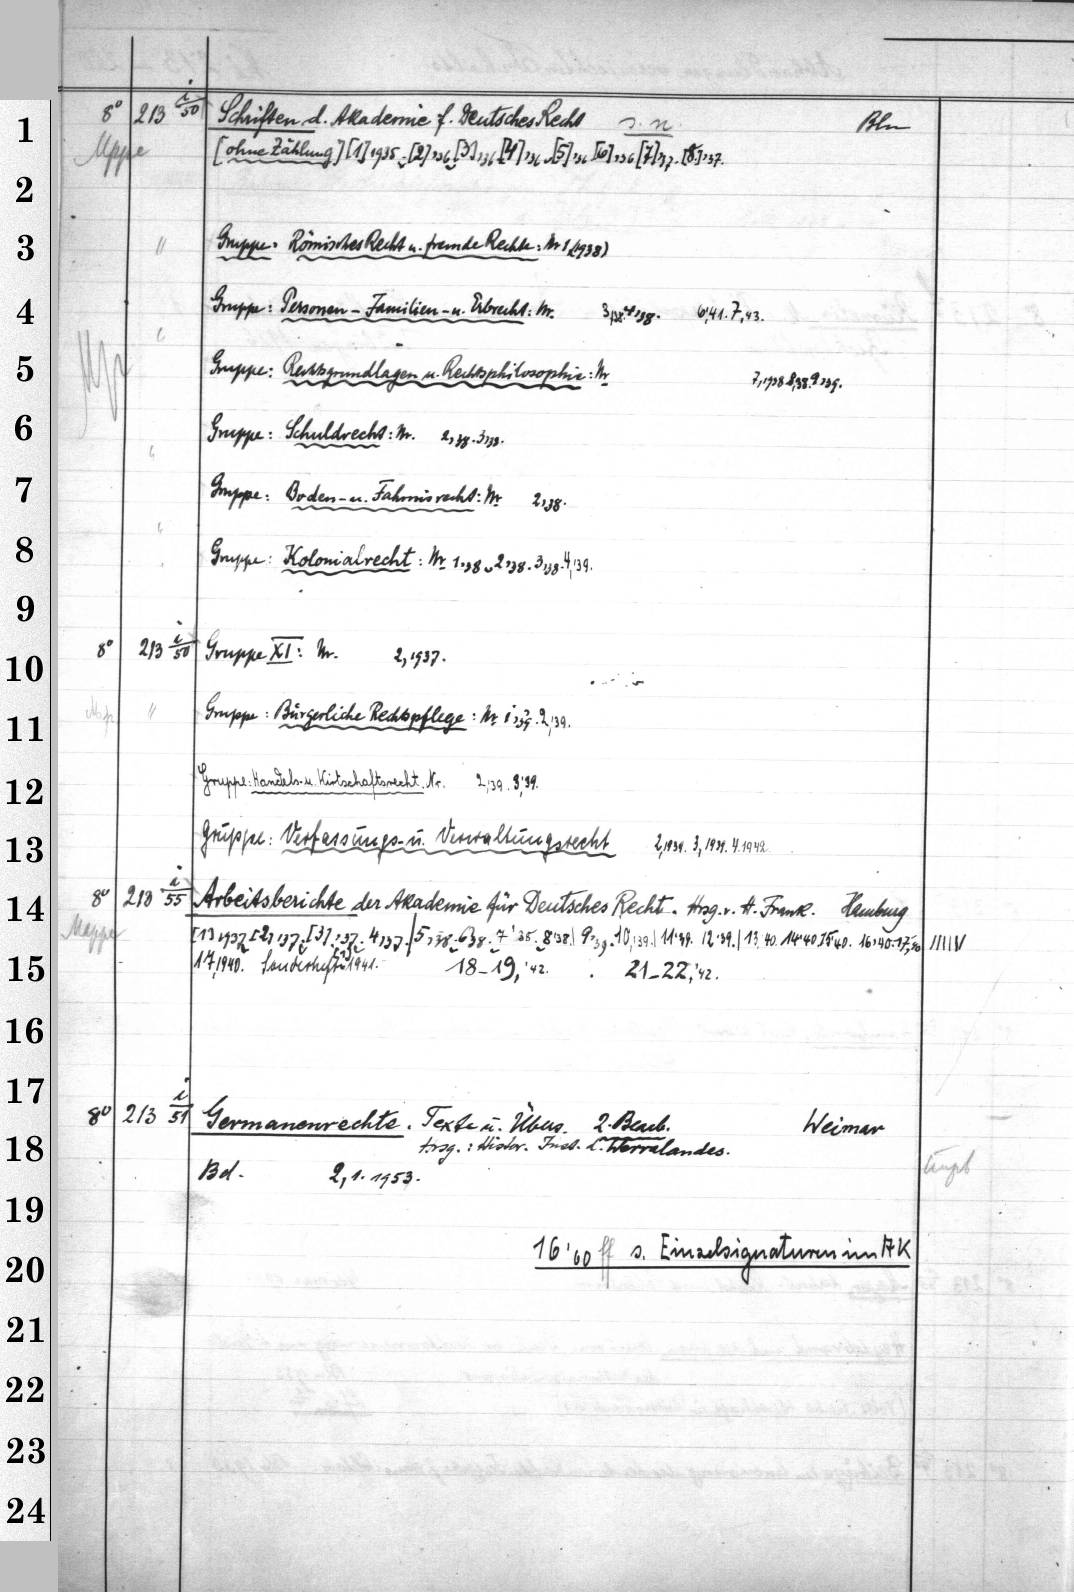 1 8° 213 i/50 Schriften d. Akademie f. Deutsches Recht s. n. Bln
Mppe [ohne Zählung] [1] 1935. [2],'36 [3],'36 [4],'36. [5],'36 [6],'36 [7],'37. [8],'37.
2
3 " Gruppe: Römisches Recht u. fremde Rechte: Nr 1 (1938)
4 Gruppe: Personen- Familien- u. Erbrecht: Nr. 3,'38. 4,'38. 6,'41. 7,'43.
5 Gruppe: Rechtsgrundlagen u. Rechtsphilosophie: Nr 7,1938 8,'38. 9,'39.
6 Gruppe: Schuldrecht: Nr. 2,'38. 3,'38.
7 Gruppe: Boden- u. Fahrnisrecht: Nr 2,'38.
8 Gruppe: Kolonialrecht: Nr 1,'38. 2,'38. 3,'38. 4,'39.
9
10 8° 213 i/50 Gruppe XI: Nr. 2,1937.
11 " Gruppe: Bürgerliche Rechtspflege: Nr 1,'39. 2,'39.
12 Gruppe: Handels- u. Wirtschaftsrecht. Nr. 2,'39. 3,'39.
13 Gruppe: Verfassungs- u. Verwaltungsrecht 2,1939. 3,1939. 4.1942.
14 8° 213 i/55 Arbeitsberichte der Akademie für Deutsches Recht. Hrsg. v. H. Frank. Hamburg
Mappe [1] 1937 [2],'37. [3],'37. 4,'37. 5,'38. 6'38. 7'38. 8'38. 9,'39. 10,'39. 11'39. 12'39. 13,'40. 14'40 15'40. 16'40.
15 17,1940. Sonderheft 1941. 18-19,'42. 21-22,'42.
16
17
8° 213 i/51 Germanenrechte. Texte u. Übers. 2. Bearb. Weimar
18 Hrsg.: Histor. Inst. d. Werralandes.
Bd. 2,1. 1953.
19
20 16'60 ff s. Einzelsignaturen im AK
21
22
23
24